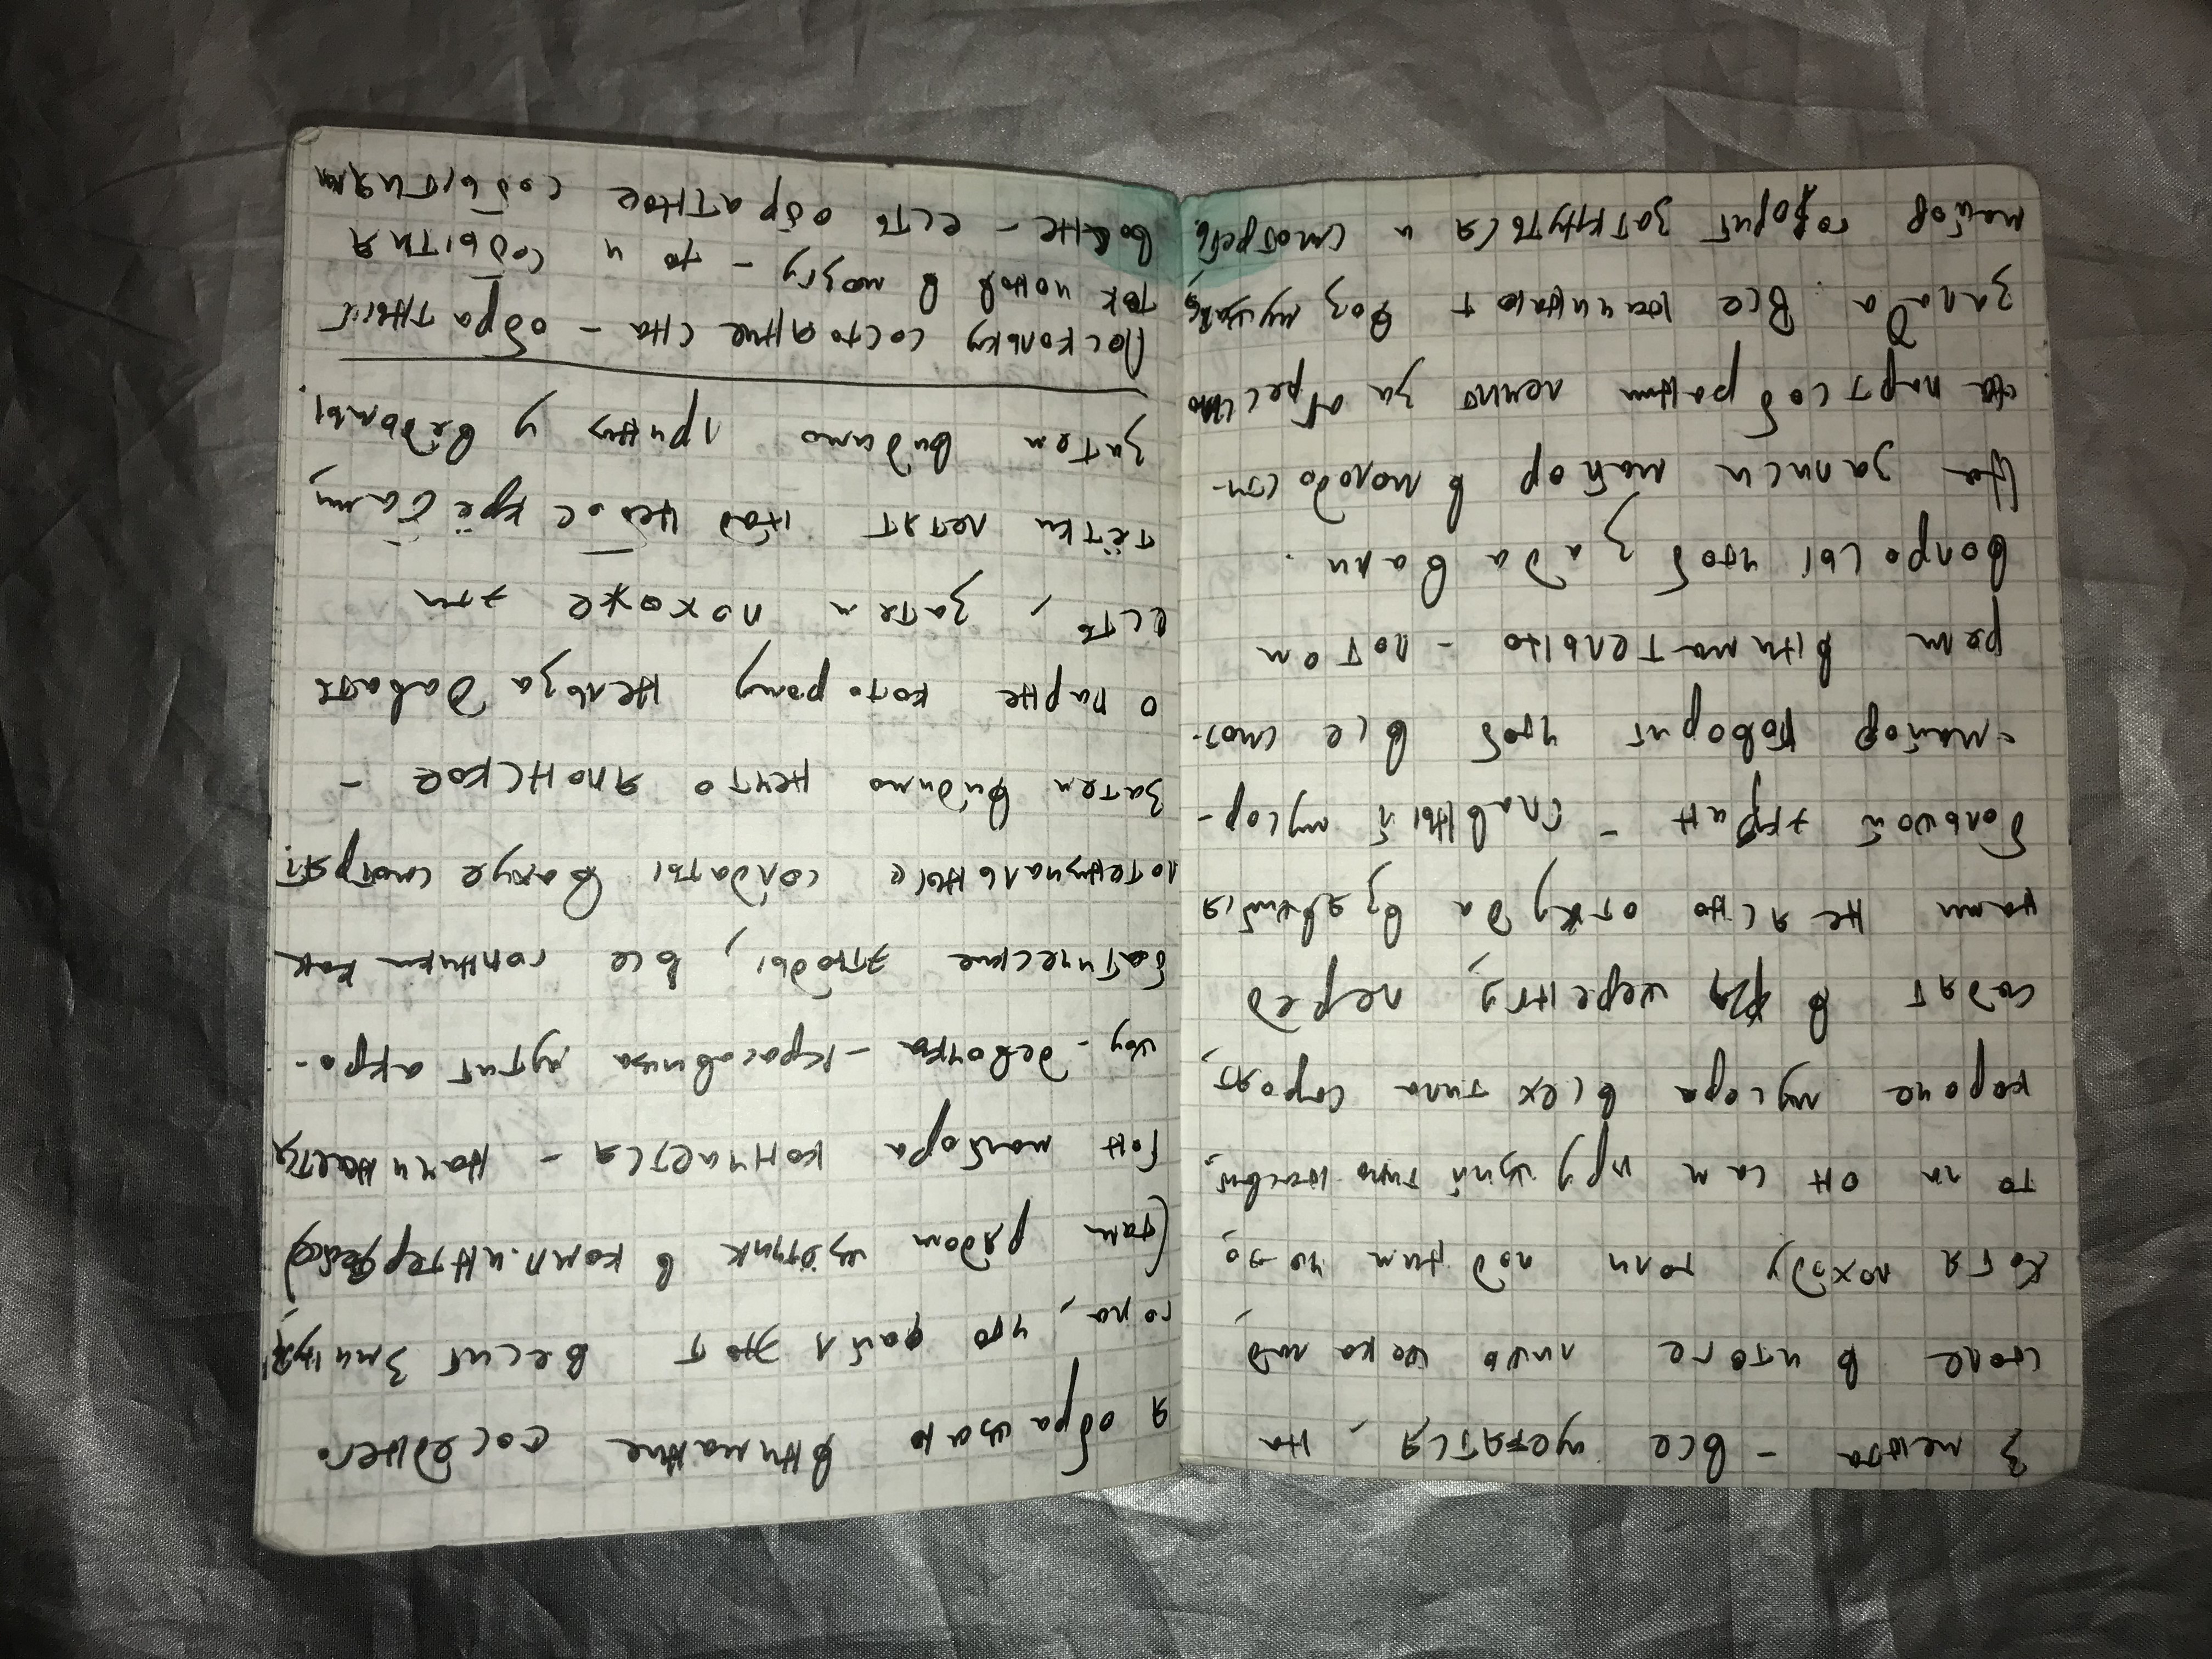 3 мента - все шетятся, на
столе в итоге лишь шоколад,
хотя походу толи под ним чо-то,
то ли он сам прущий типо насвай,
короче мусора всех типа строят,
садят в шеренгу, перед
нами не ясно откуда взявшийся
большой экран - главный мусор-
-майор говорит чтоб все смот-
рели внимательно - потом
вопросы чтоб задавали.
На записи майор в молодости-
на партсобрании лечит за агрессию
запада. Все начинают возмущаться,
майор говорит заткнуться и смотреть.
я обращаю внимание соседнего
гопа, что файл этот весит 3 минуты,
(там рядом щётчик в комп.интерфейсе)
Гон майора кончается - начинается
шоу - девочка - красавица мутит акро-
батические этюды, все гопники как
потенциальные солдаты вахуе смотрят.
Затем видимо нечто японское -
о парне которому нельза давать
есть, затем похоже эти
тётки летят над небоскрёбами,
затем видимо принц у ведьмы.
Поскольку состояние сна - обратный
ток ионов в мозгу - то и события
во сне - есть обратное событиям